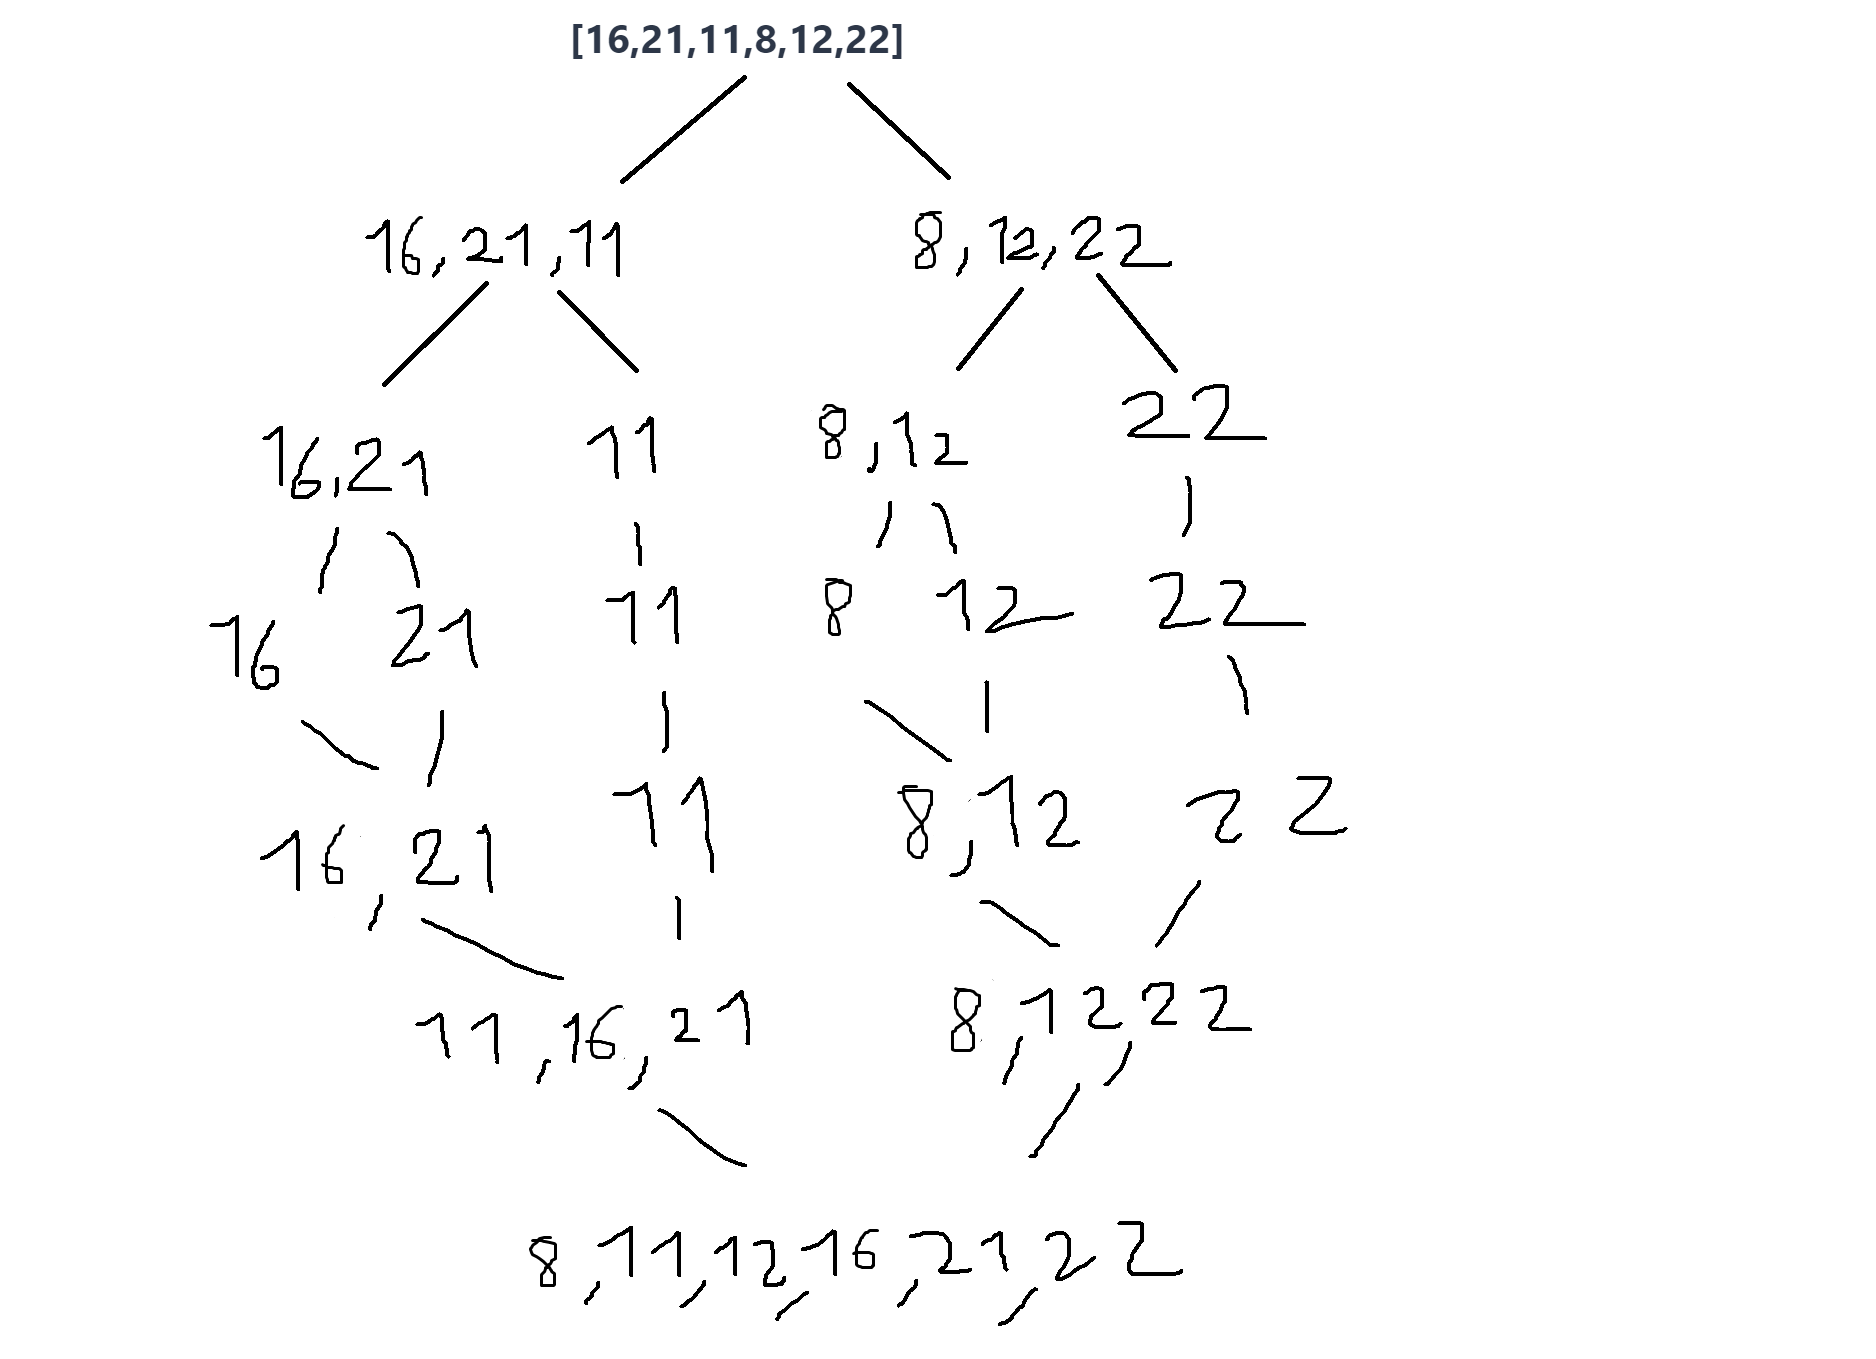 [16,21,11,8,12,22]
16,21,11 8,12,22
16,21 11 8,12 22
16 21 11 8 12 22
16,21 11 8,12 22
11,16,21 8,12,22
8,11,12,16,21,22